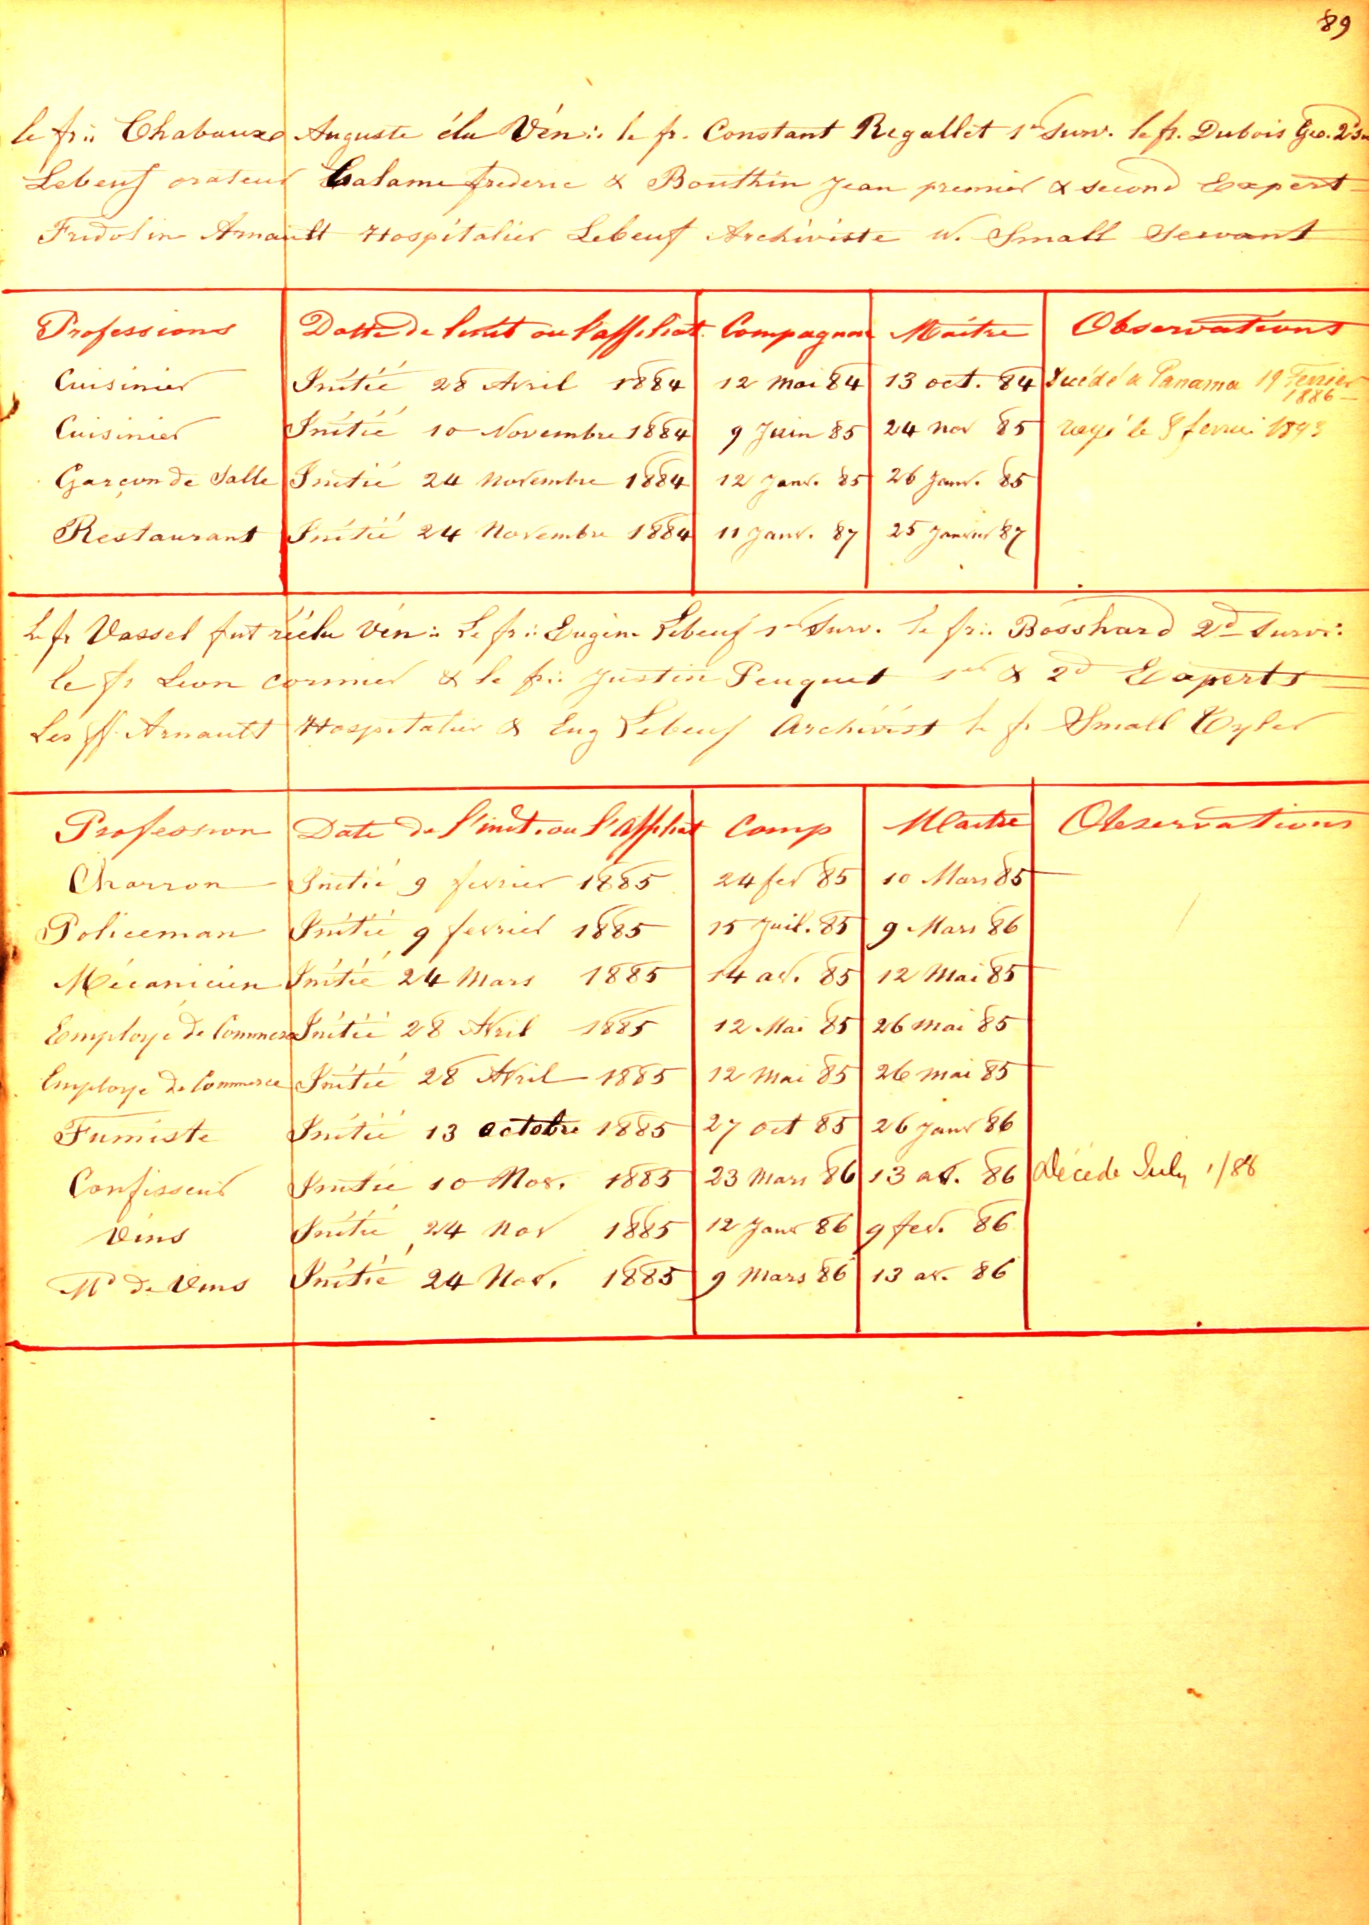 89
le fr∴ Chabaux Auguste élu Vén∴ le fr. Constant Regallet 1er Surv. le fr. Dubois Geo. 2d
Lebeuf orateur Calame frederic & Bouthin Jean premier & second Expert
Fridolin Arnault Hospitalier Lebeuf Archiviste W. Small Servant
Professions Datte de l'init ou l'affiliat. Compagnon Maitre Observations
Cuisinier Initié 28 Avril 1884 12 Mai 84 13 oct. 84 Décédé a Panama 19 Fevrier 1886
Cuisinier Initié 10 Novembre 1884 9 Juin 85 24 Nov 85 rayé le 8 fevrier 1893
Garçon de Salle Initié 24 Novembre 1884 12 Janv. 85 26 Janv. 85
Restaurant Initié 24 Novembre 1884 11 Janv. 87 25 Janvier 87
Le fr Vassel fut réélu Vén∴ Le fr∴ Eugène Lebeuf 1er Surv. le fr∴ Bosshard 2d Surv∴
le fr Leon Cormier & le fr∴ Justin Peuquet 1er & 2d Experts
Les ff. Arnault Hospitalier & Eug Lebeuf Archivist le fr Small Tyler
Profession Date de l'init. ou l'affiliat Comp Maitre Observations
Charron Initié 9 fevrier 1885 24 fev 85 10 Mars 85
Policeman Initié 9 fevrier 1885 15 Juil. 85 9 Mars 86
Mécanicien Initié 24 Mars 1885 14 av. 85 12 Mai 85
Employé de Commerce Initié 28 Avril 1885 12 Mai 85 26 mai 85
Employe de Commerce Initié 28 Avril 1885 12 Mai 85 26 mai 85
Fumiste Initié 13 octobre 1885 27 oct 85 26 Janv 86
Confisseur Initié 10 Nov. 1885 23 Mars 86 13 av. 86 Décédé July 1/88
Vins Initié 24 Nov 1885 12 Janv 86 9 fev. 86
Md de Vins Initié 24 Nov. 1885 9 Mars 86 13 av. 86